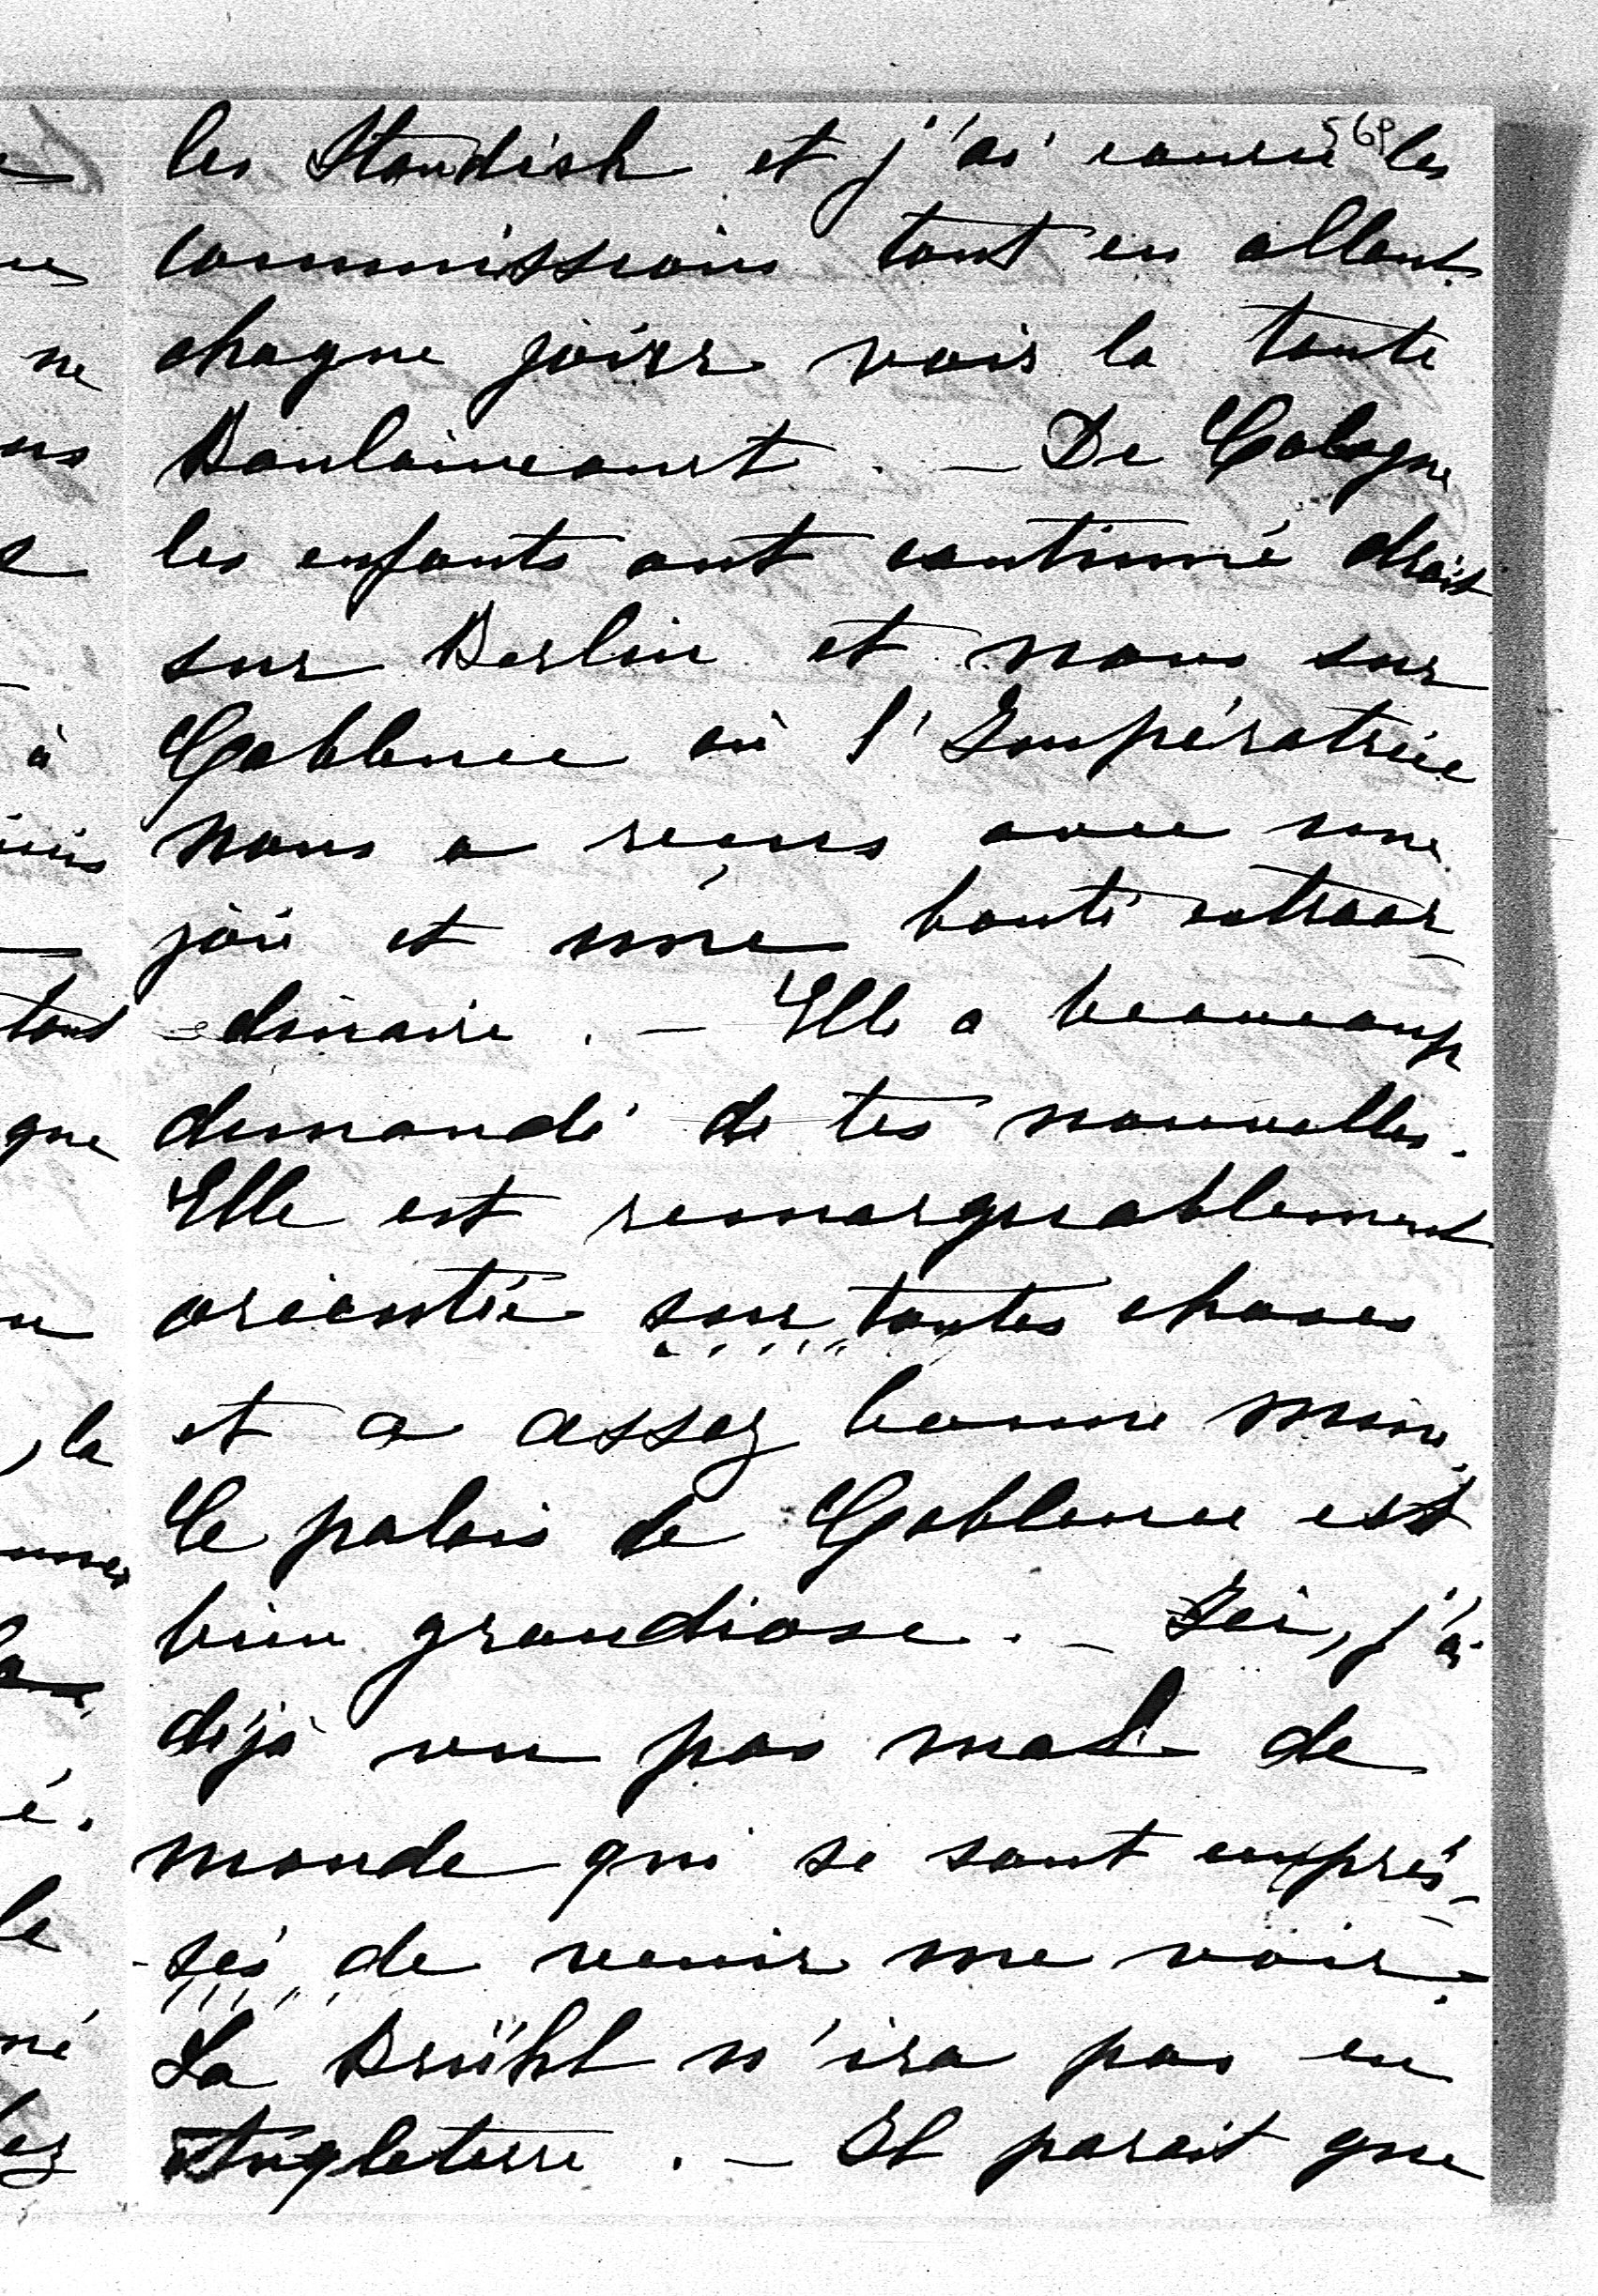 569
les Standish et j'ai couru les
commissions tout en allant
chaque jour voir la tante
Baulaincourt. — De Cologne
les enfants ont continué droit
sur Berlin et nous sur
Coblence où l'Impératrice
nous a reçus avec une
joie et une bonté extraor-
-dinaire. — Elle a beaucoup
demandé de tes nouvelles.
Elle est remarquablement
orientée sur toutes choses
et a assez bonne mine.
Ce palais de Coblence est
bien grandiose. — Ici, j'ai
déjà vu pas mal de
monde qui se sont empres-
-sés de venir me voir. —
La Brühl n'ira pas en
Angleterre. — Il parait que